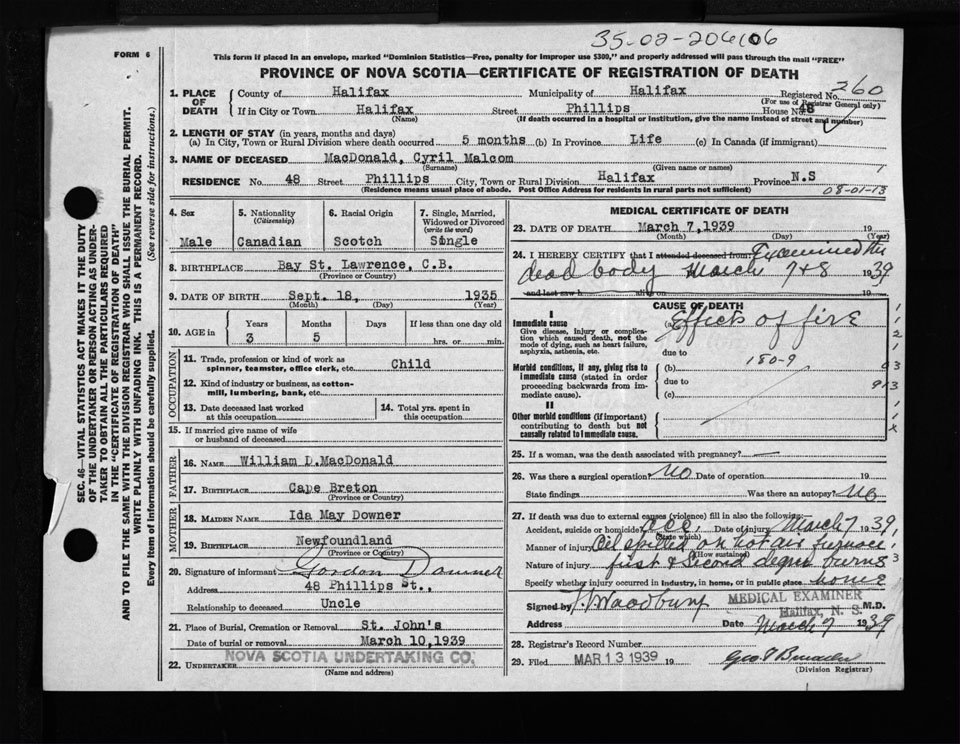 35-02-206106
FORM 6
This form if placed in an envelope, marked "Dominion Statistics—Free, penalty for improper use $300," and properly addressed will pass through the mail "FREE"
PROVINCE OF NOVA SCOTIA—CERTIFICATE OF REGISTRATION OF DEATH
260
1. PLACE OF DEATH
County of Halifax Municipality of Halifax Registered No.
(For use of Registrar General only)
If in City or Town Halifax Street Phillips House No. 48
(Name) (If death occurred in a hospital or institution, give the name instead of street and number)
2. LENGTH OF STAY (in years, months and days)
(a) In City, Town or Rural Division where death occurred 5 months (b) In Province Life (c) In Canada (if immigrant)
3. NAME OF DECEASED MacDonald, Cyril Malcom
(Surname) (Given name or names)
RESIDENCE No. 48 Street Phillips City, Town or Rural Division Halifax Province N.S
(Residence means usual place of abode. Post Office Address for residents in rural parts not sufficient)
08-01-13
4. Sex
Male
5. Nationality
(Citizenship)
Canadian
6. Racial Origin
Scotch
7. Single, Married, Widowed or Divorced
(write the word)
Single
8. BIRTHPLACE Bay St. Lawrence, C.B.
(Province or Country)
9. DATE OF BIRTH Sept. 18, 1935
(Month) (Day) (Year)
10. AGE in
Years Months Days If less than one day old
3 5 hrs. or min.
OCCUPATION
11. Trade, profession or kind of work as
spinner, teamster, office clerk, etc. Child
12. Kind of industry or business, as cotton-
mill, lumbering, bank, etc.
13. Date deceased last worked
at this occupation
14. Total yrs. spent in
this occupation
15. If married give name of wife
or husband of deceased
FATHER
16. NAME William D. MacDonald
17. BIRTHPLACE Cape Breton
(Province or Country)
MOTHER
18. MAIDEN NAME Ida May Downer
19. BIRTHPLACE Newfoundland
(Province or Country)
20. Signature of informant Gordon Downer
Address 48 Phillips St.,
Relationship to deceased Uncle
21. Place of Burial, Cremation or Removal St. John's
Date of burial or removal March 10, 1939
22. UNDERTAKER NOVA SCOTIA UNDERTAKING CO.
(Name and address)
MEDICAL CERTIFICATE OF DEATH
23. DATE OF DEATH March 7, 1939 19
(Month) (Day) (Year)
24. I HEREBY CERTIFY that I attended deceased from Examined the
dead body March 7 & 8 1939
and last saw h alive on
CAUSE OF DEATH
I
Immediate cause
Give disease, injury or complica-
tion which caused death, not the
mode of dying, such as heart failure,
asphyxia, asthenia, etc.
(a) Effects of fire
due to
Morbid conditions, if any, giving rise to
immediate cause (stated in order
proceeding backwards from im-
mediate cause).
(b) 180-9
due to
(c)
II
Other morbid conditions (if important)
contributing to death but not
causally related to immediate cause.
25. If a woman, was the death associated with pregnancy?
26. Was there a surgical operation? No Date of operation 19
State findings Was there an autopsy? No
27. If death was due to external causes (violence) fill in also the following:
Accident, suicide or homicide? acc. Date of injury March 7 1939,
(State which)
Manner of injury Oil spilled on hot air furnace
(How sustained)
Nature of injury first & second degree burns
Specify whether injury occurred in industry, in home, or in public place home
Signed by Woodbury M.D.
MEDICAL EXAMINER
Halifax, N. S.
Address Date March 7 1939
28. Registrar's Record Number
29. Filed MAR 13 1939 19
(Division Registrar)
SEC. 46—VITAL STATISTICS ACT MAKES IT THE DUTY
OF THE UNDERTAKER OR PERSON ACTING AS UNDER-
TAKER TO OBTAIN ALL THE PARTICULARS REQUIRED
IN THE "CERTIFICATE OF REGISTRATION OF DEATH"
AND TO FILE THE SAME WITH THE DIVISION REGISTRAR WHO SHALL ISSUE THE BURIAL PERMIT.
WRITE PLAINLY WITH UNFADING INK. THIS IS A PERMANENT RECORD.
Every item of information should be carefully supplied. (See reverse side for instructions.)